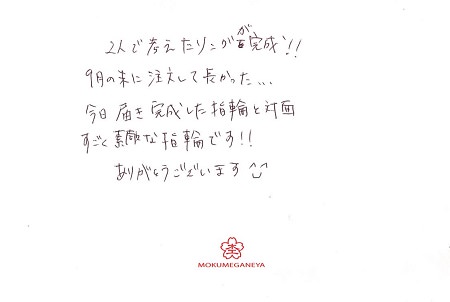 2人で考えたリングが完成!!
9月の末に注文して長かった...
今日 届き完成した指輪と対面
すごく素敵な指輪です!!
ありがとうございます ^^
MOKUMEGANEYA